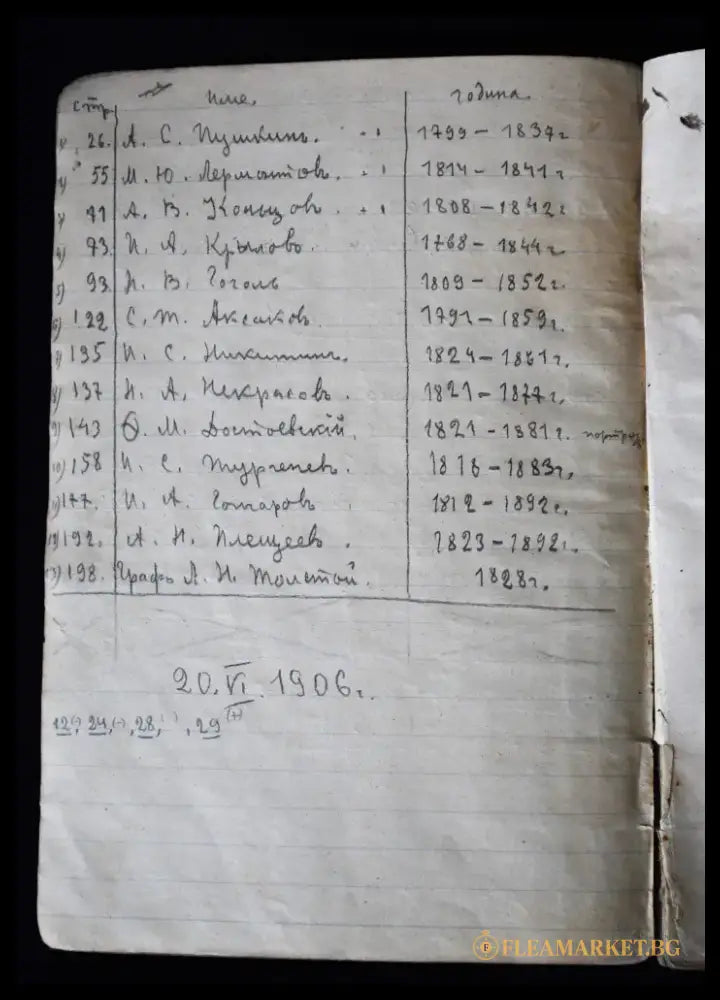 стр. име. година.
26. А. С. Пушкинъ. 1799 – 1837г
55 М. Ю. Лермонтовъ. 1814 – 1841г
71 А. В. Кольцовъ. 1808 – 1842г
4) 73. И. А. Крыловъ. 1768 – 1844г.
5) 93. Н. В. Гоголь 1809 – 1852г.
6) 122 С. Т. Аксаковъ. 1791 – 1859г.
7) 135 И. С. Никитинъ. 1824 – 1861г.
8) 137 Н. А. Некрасовъ. 1821 – 1877г.
9) 143 Ѳ. М. Достоевскій. 1821 – 1881г.
10) 158 И. С. Тургеневъ. 1818 – 1883г.
11) 177. И. А. Гончаровъ 1812 – 1892г.
12) 192. А. Н. Плещеевъ. 1823 – 1892г.
13) 198. Графъ Л. Н. Толстой. 1828г.
20. VI. 1906г.
12, 24, 28, 29
FLEAMARKET.BG